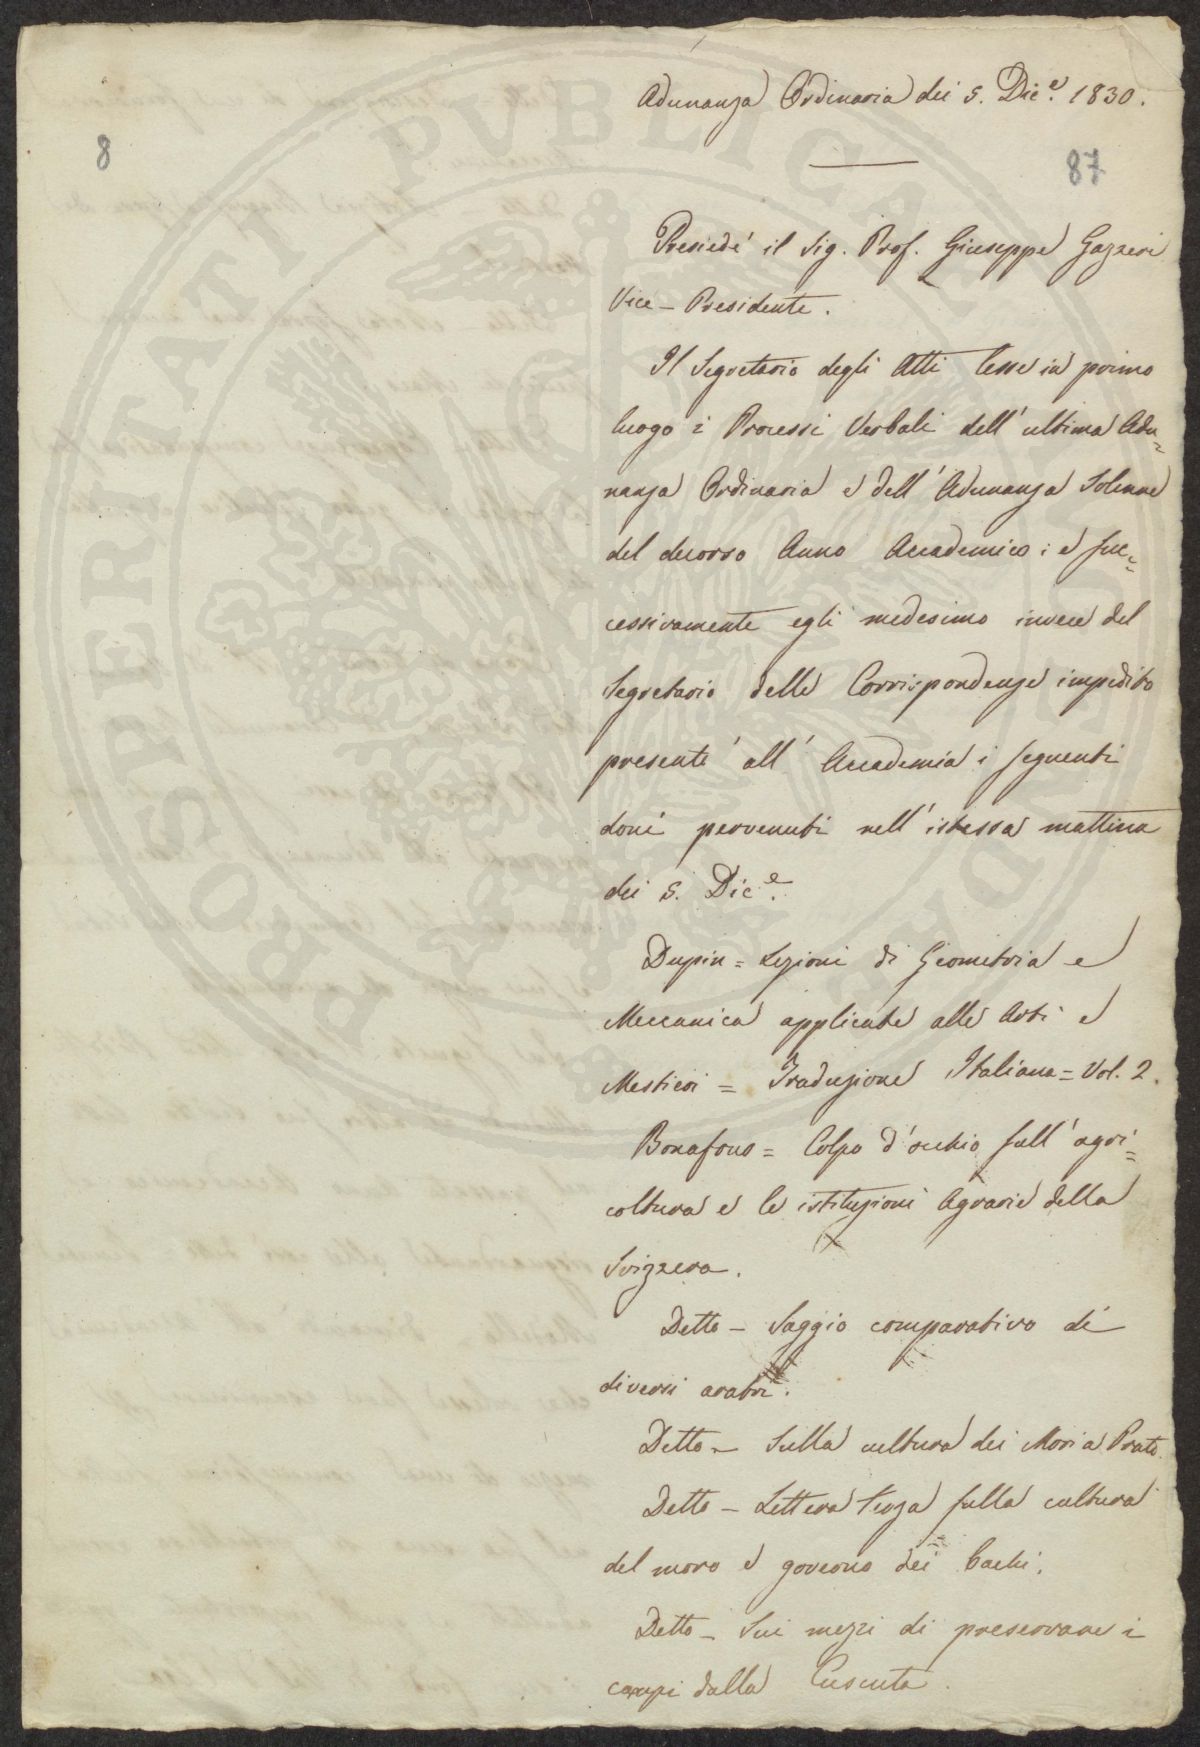 Adunanza Ordinaria dei 5. Dic.e 1830.
8
87
Presiedé il Sig. Prof. Giuseppe Gazzeri
Vice-Presidente.
Il Segretario degli Atti lesse in primo
luogo i Processi Verbali dell'ultima Adu=
nanza Ordinaria e dell'Adunanza Solenne
del decorso Anno Accademico; e suc=
cessivamente egli medesimo invece del
Segretario delle Corrispondenze impedito
presentò all'Accademia i seguenti
doni pervenuti nell'istessa mattina
dei 5. Dic.e
Dupin = Lezioni di Geometria e
Meccanica applicate alle Arti e
Mestieri = Traduzione Italiana = Vol. 2.
Bonafous = Colpo d'occhio sull'agri=
coltura e le istituzioni Agrarie della
Svizzera.
Detto - Saggio comparativo di
diversi aratri.
Detto - Sulla cultura dei Mori a Prato.
Detto - Lettera terza sulla cultura
del moro e governo dei bachi.
Detto - Sui mezzi di preservare i
campi dalla Cuscuta.
PROSPERITATI PUBLICAE AUGENDAE